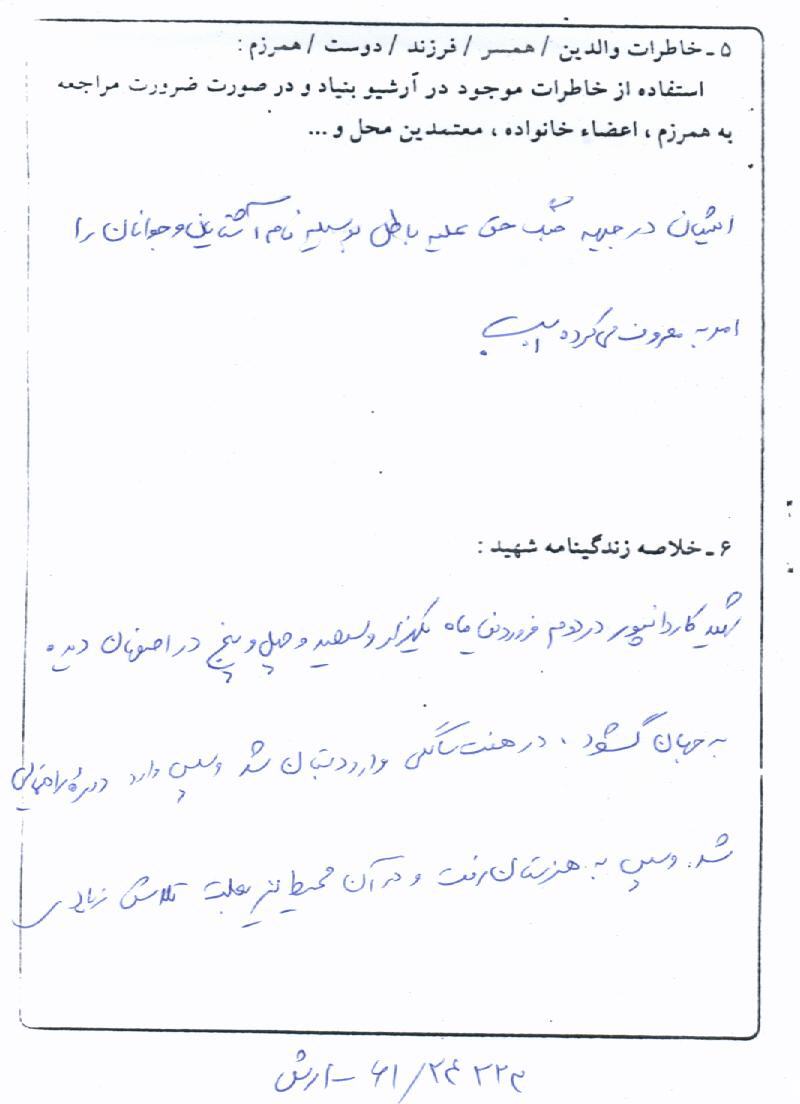 ۵ ـ خاطرات والدین / همسر / فرزند / دوست / همرزم :
استفاده از خاطرات موجود در آرشیو بنیاد و در صورت ضرورت مراجعه
به همرزم ، اعضاء خانواده ، معتمدین محل و ...
ایشان در جبهه جنگ حق علیه باطل بوسیله نامه آشنایان و جوانان را
امر به معروف می‌کرده است
۶ ـ خلاصه زندگینامه شهید :
شهید کاردانپور در دوم فروردین ماه یکهزار و سیصد و چهل و پنج در اصفهان دیده
به جهان گشود . در هفت سالگی وارد دبستان شد و سپس وارد دوره راهنمائی
شد. و سپس به هنرستان رفت و در آن محیط نیز بعلت تلاش زیادی